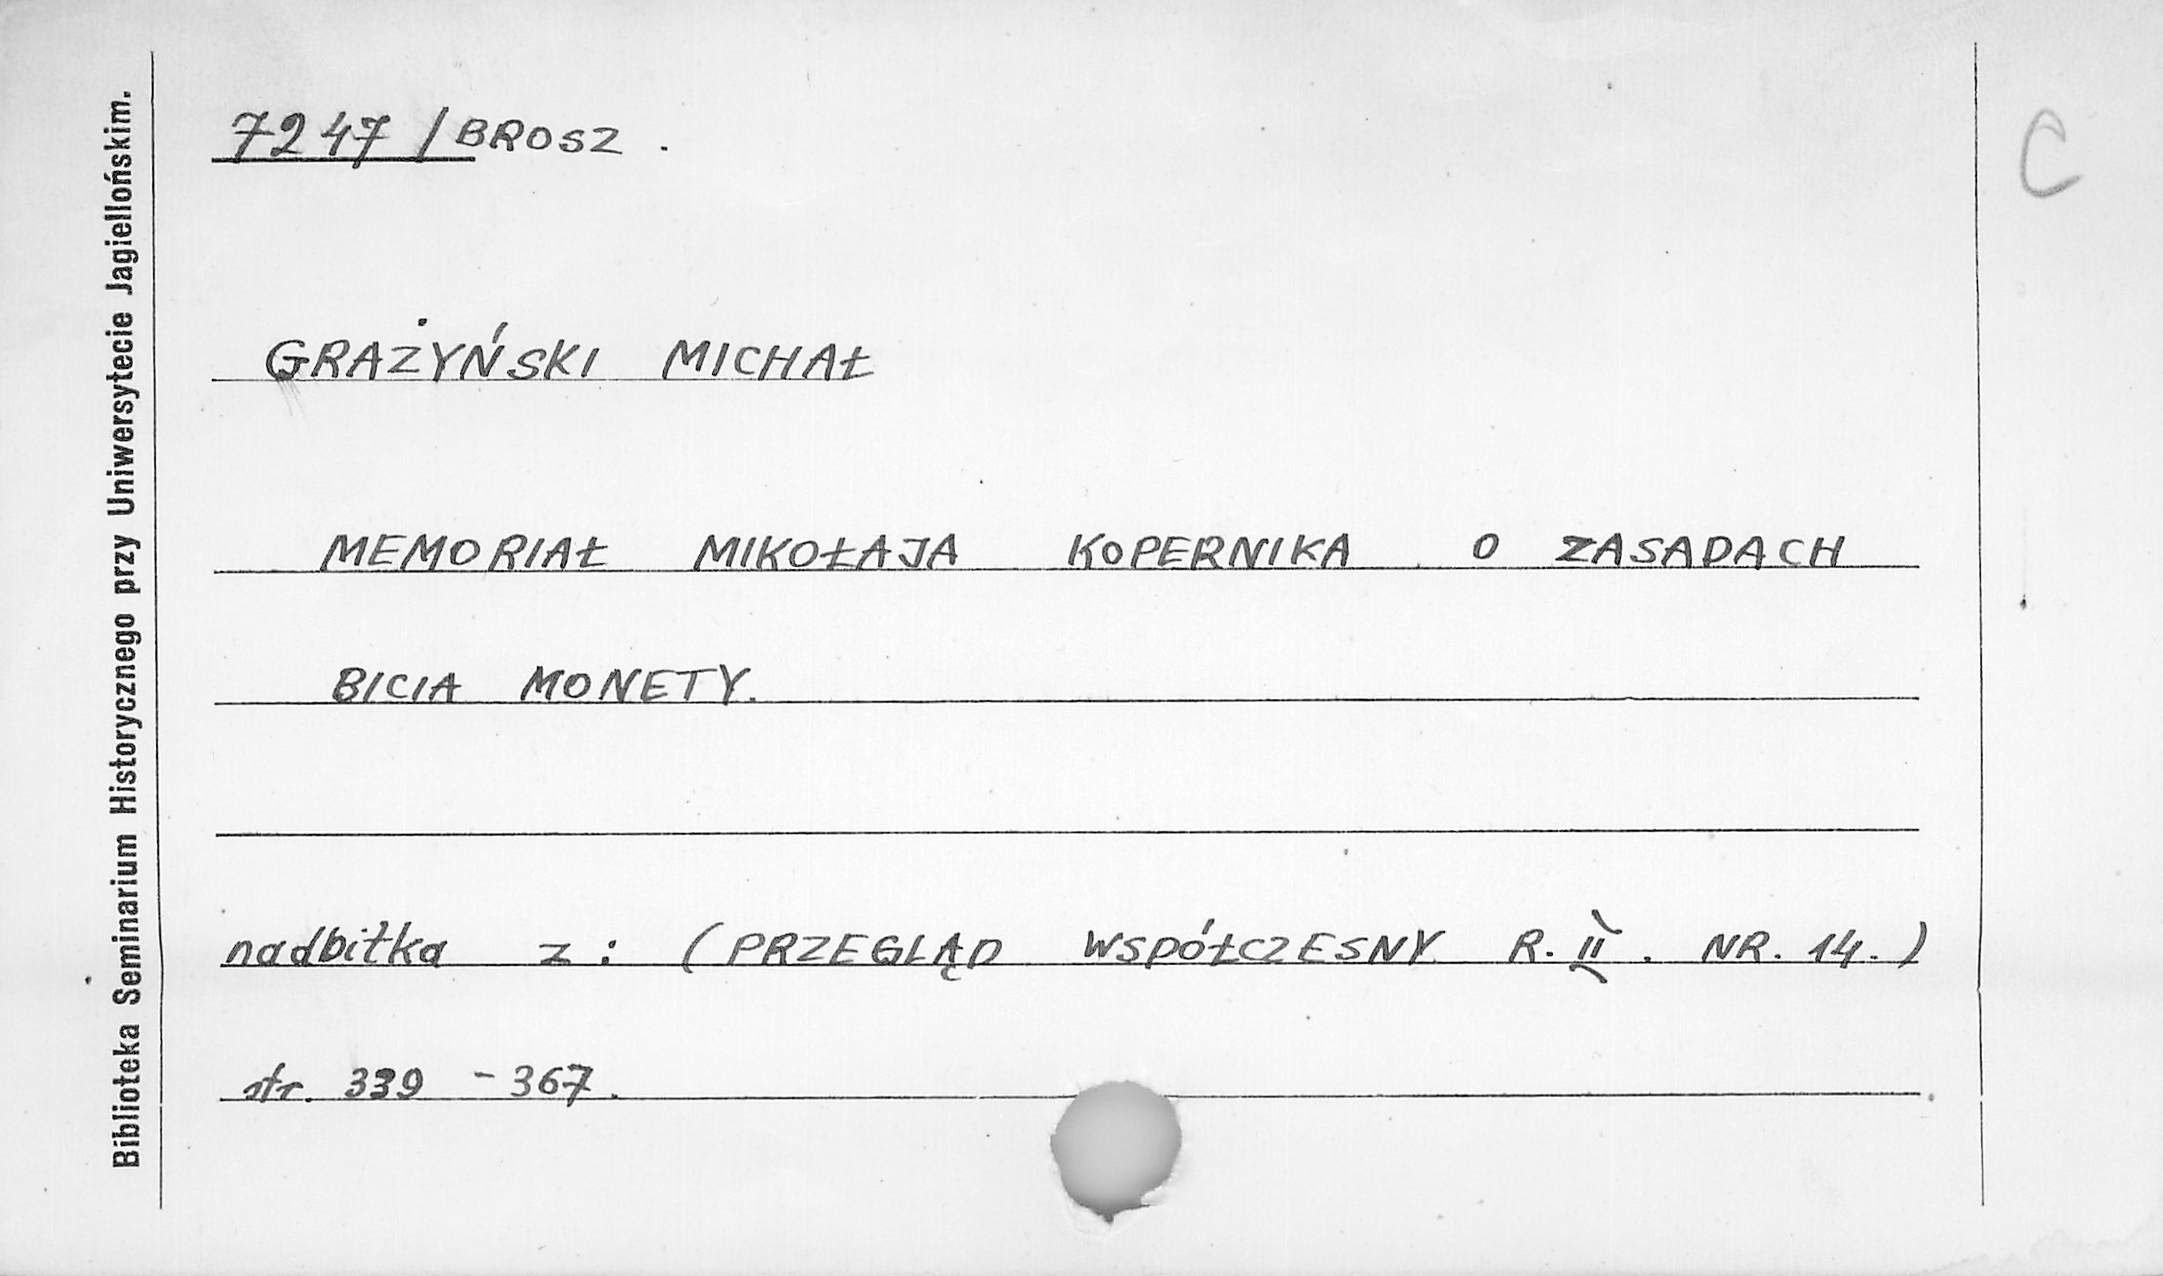 Biblioteka Seminarium Historycznego przy Uniwersytecie Jagiellońskim.
7247 / BROSZ.
C
GRAŻYŃSKI MICHAŁ
MEMORIAŁ MIKOŁAJA KOPERNIKA O ZASADACH
BICIA MONETY.
nadbitka z: (PRZEGLĄD WSPÓŁCZESNY R. II. NR. 14.)
str. 339 - 367.